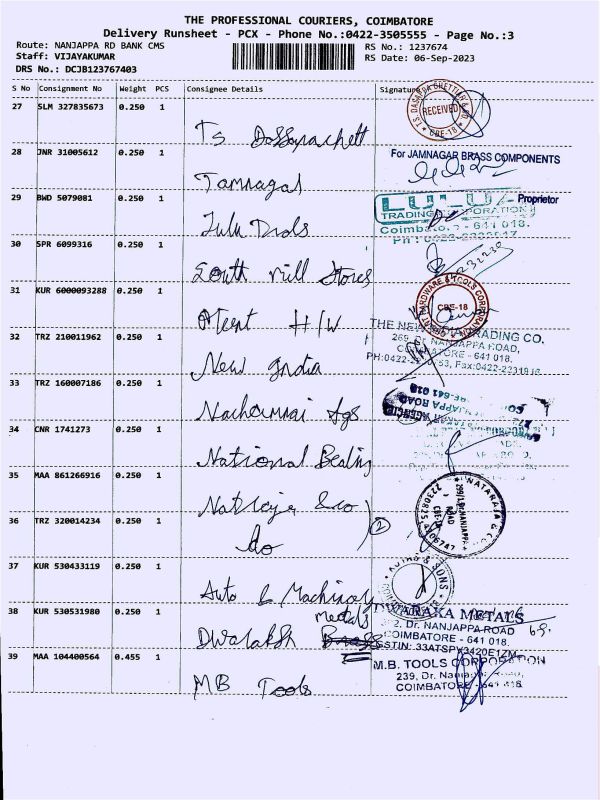 THE PROFESSIONAL COURIERS, COIMBATORE
Delivery Runsheet - PCX - Phone No.:0422-3505555 - Page No.:3
Route: NANJAPPA RD BANK CMS
RS No.: 1237674
Staff: VIJAYAKUMAR
RS Date: 06-Sep-2023
DRS No.: DCJB123767403
S No Consignment No Weight PCS Consignee Details Signature
27 SLM 327835673 0.250 1
T.S. DASAPPA CHETTIAR & CO.
RECEIVED
CBE-18
Ts
28 JNR 31005612 0.250 1
For JAMNAGAR BRASS COMPONENTS
Jamnagal
29 BWD 5079081 0.250 1
Proprietor
LULU
TRADING CORPORATION
641 018.
Lulu Trols
30 SPR 6099316 0.250 1
South mill Stores
31 KUR 6000093288 0.250 1
HARDWARE & TOOLS CORPORATION
CBE-18
H/W
32 TRZ 210011962 0.250 1
THE NEW INDIA TRADING CO.
265, Dr. NANJAPPA ROAD,
COIMBATORE - 641 018.
New India
33 TRZ 160007186 0.250 1
NANJAPPA ROAD
Ags
34 CNR 1741273 0.250 1
National Bealing
35 MAA 861266916 0.250 1
NATARAJA & CO
299/1, Dr. NANJAPPA
ROAD
CBE-18
2230825
4206747
Natraja & co
36 TRZ 320014234 0.250 1
2
do
37 KUR 530433119 0.250 1
& SONS
Auto & Machinary
38 KUR 530531980 0.250 1
DWARAKA METALS
Dr. NANJAPPA ROAD
COIMBATORE - 641 018.
metals
Dwalaksh
39 MAA 104400564 0.455 1
M.B. TOOLS CORPORATION
239, Dr.
COIMBATORE - 641 018
MB Tools